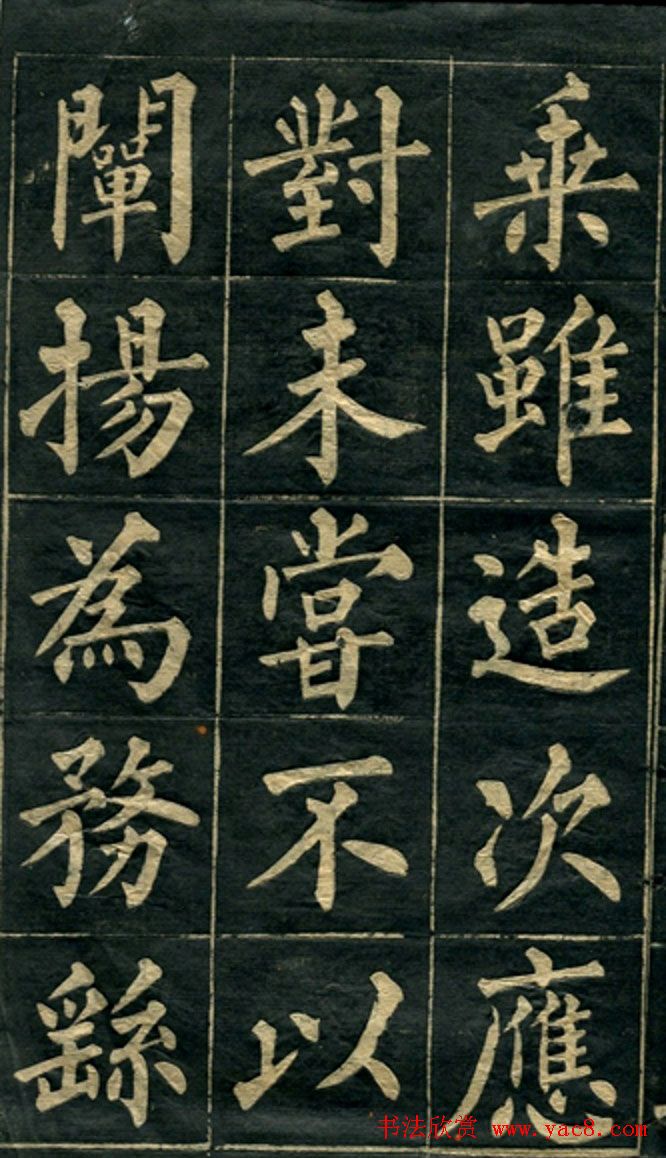 乗雖造次應
對未嘗不以
闡揚為務繇
书法欣赏 www.yac8.com